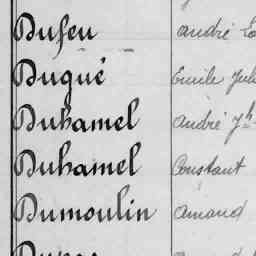 Dufeu André
Duqué Emile
Duhamel André Jh
Duhamel Constant
Dumoulin Amand